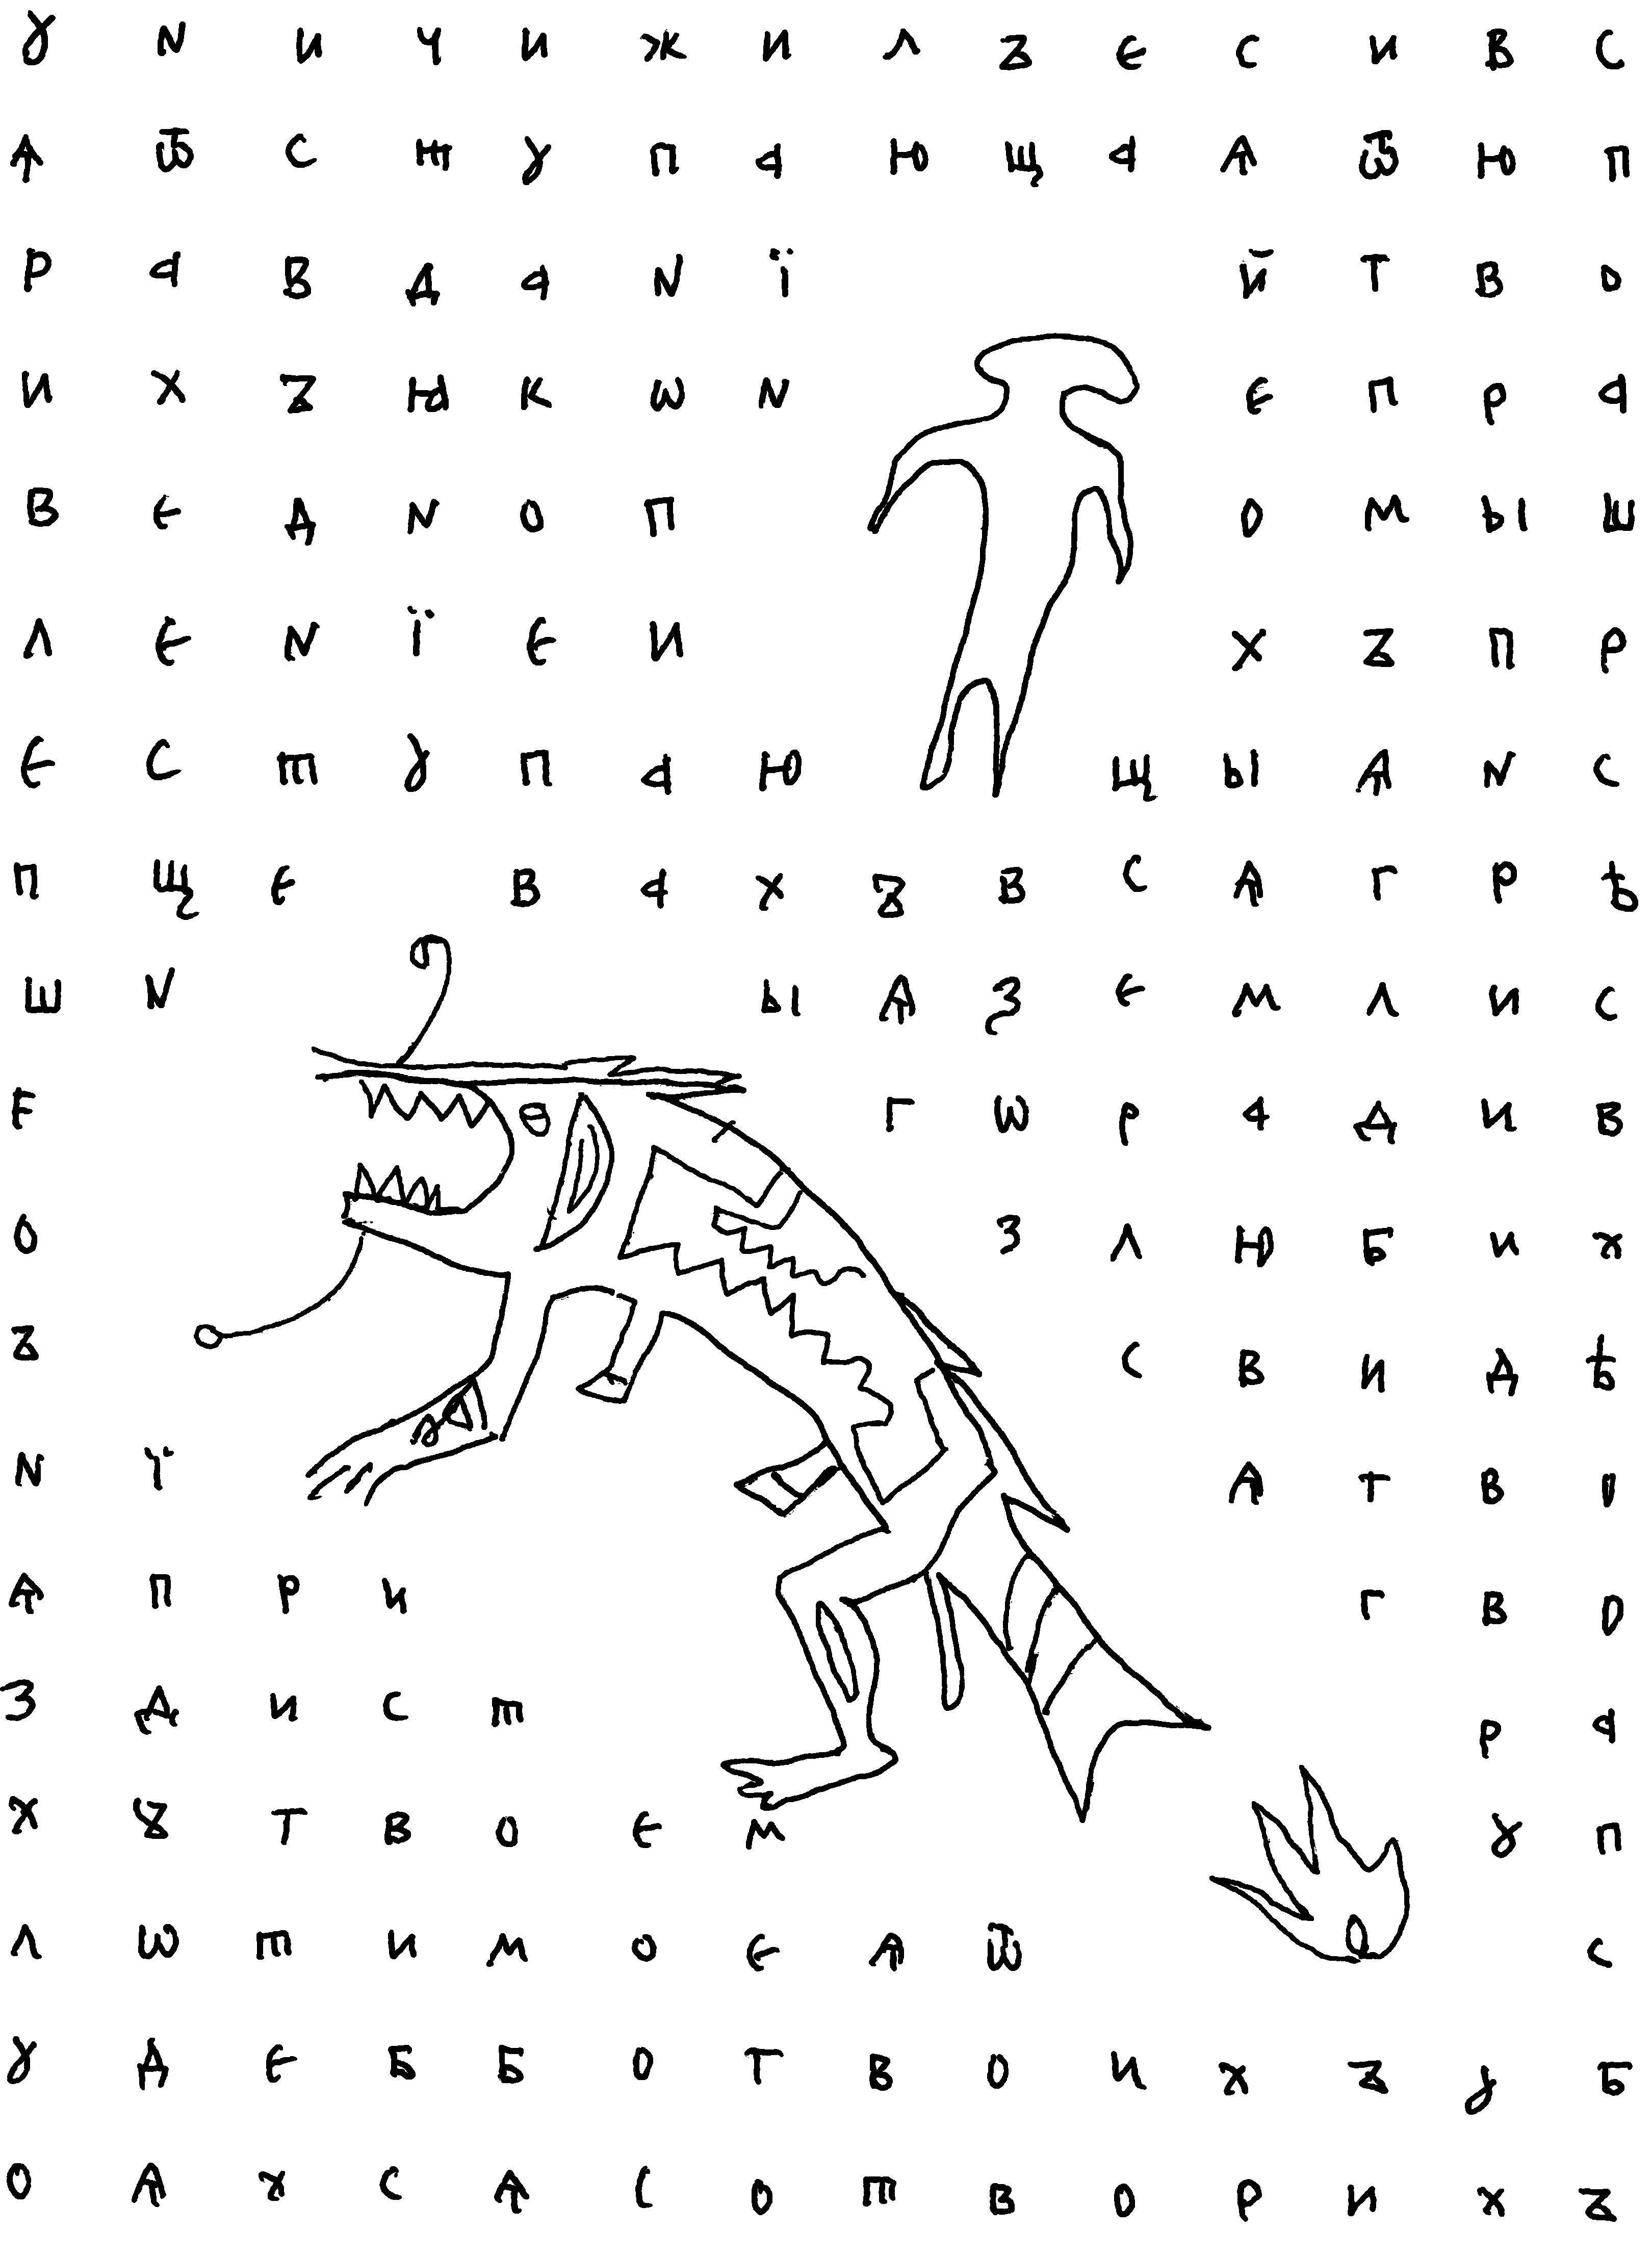 Ꙋ N И Ч И Ж И Л Ꙁ Є С И В С
Ѧ Ѿ С Т Ꙋ П А Ю Щ А Ѧ Ѿ Ю П
Р А В Д А N Ї Й Т В О
И Х Ꙁ Ꙗ К Ѡ N Є П Р А
В Є Д N О П О М Ы Ш
Л Є N Ї Є И Х Ꙁ П Р
Є С Т Ꙋ П А Ю Щ Ы Ѧ N С
П Щ Є В А Х Ꙁ В С Ѧ Г Р Ѣ
Ш N Ы Ѧ З Є М Л И С
Є Г Ѡ Р А Д И В
О З Л Ю Б И Х
Ꙁ С В И Д Ѣ
N Ї Ѧ Т В О
Ѧ П Р И Г В О
З Д И С Т Р А
Х Ꙋ Т В О Є М Ꙋ П
Л Ѡ Т И М О Є Ѧ Ѿ С
Ꙋ Д Є Б Б О Т В О И Х Ꙁ Ꙋ Б
О Ѧ Х С Ѧ С О Т В О Р И Х Ꙁ